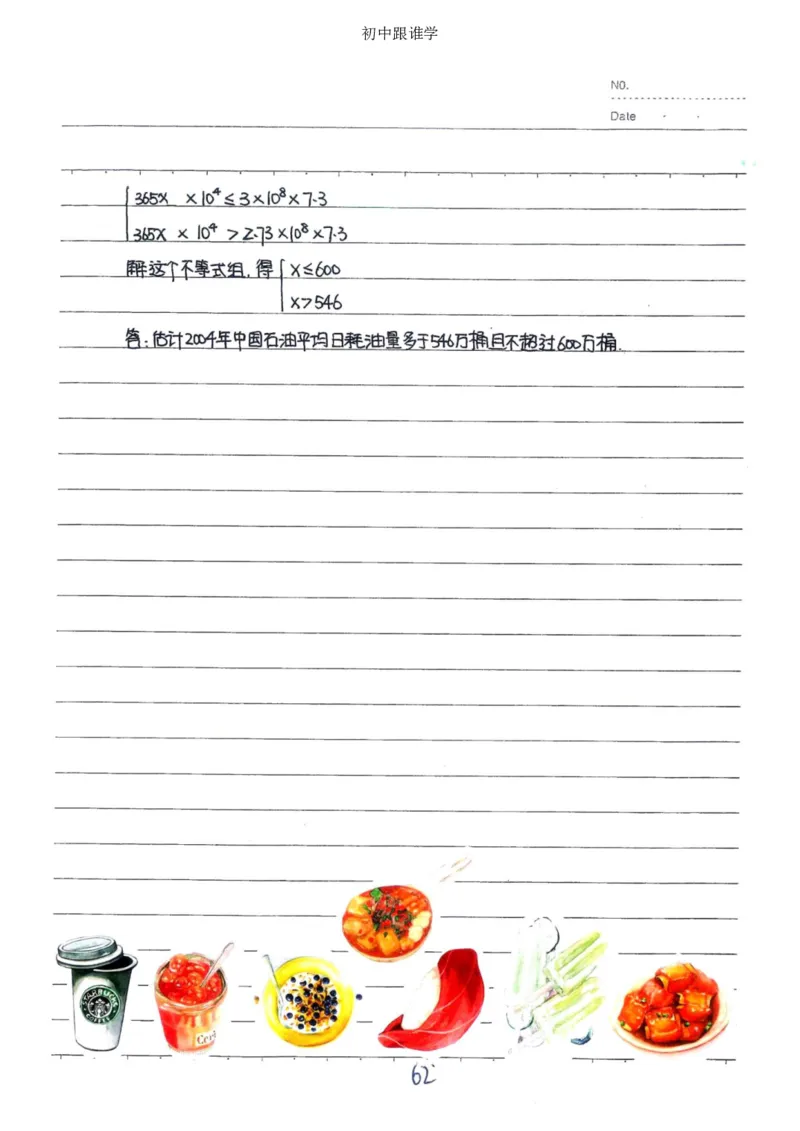 初中跟谁学
NO.
Date
365x ×10⁴≤3×10⁸×7.3
365x × 10⁴ >2.73×10⁸×7.3
解这个不等式组,得 x≤600
x>546
答:估计2004年中国石油平均日耗油量多于546万桶且不超过600万桶.
STARBUCKS
COFFEE
62